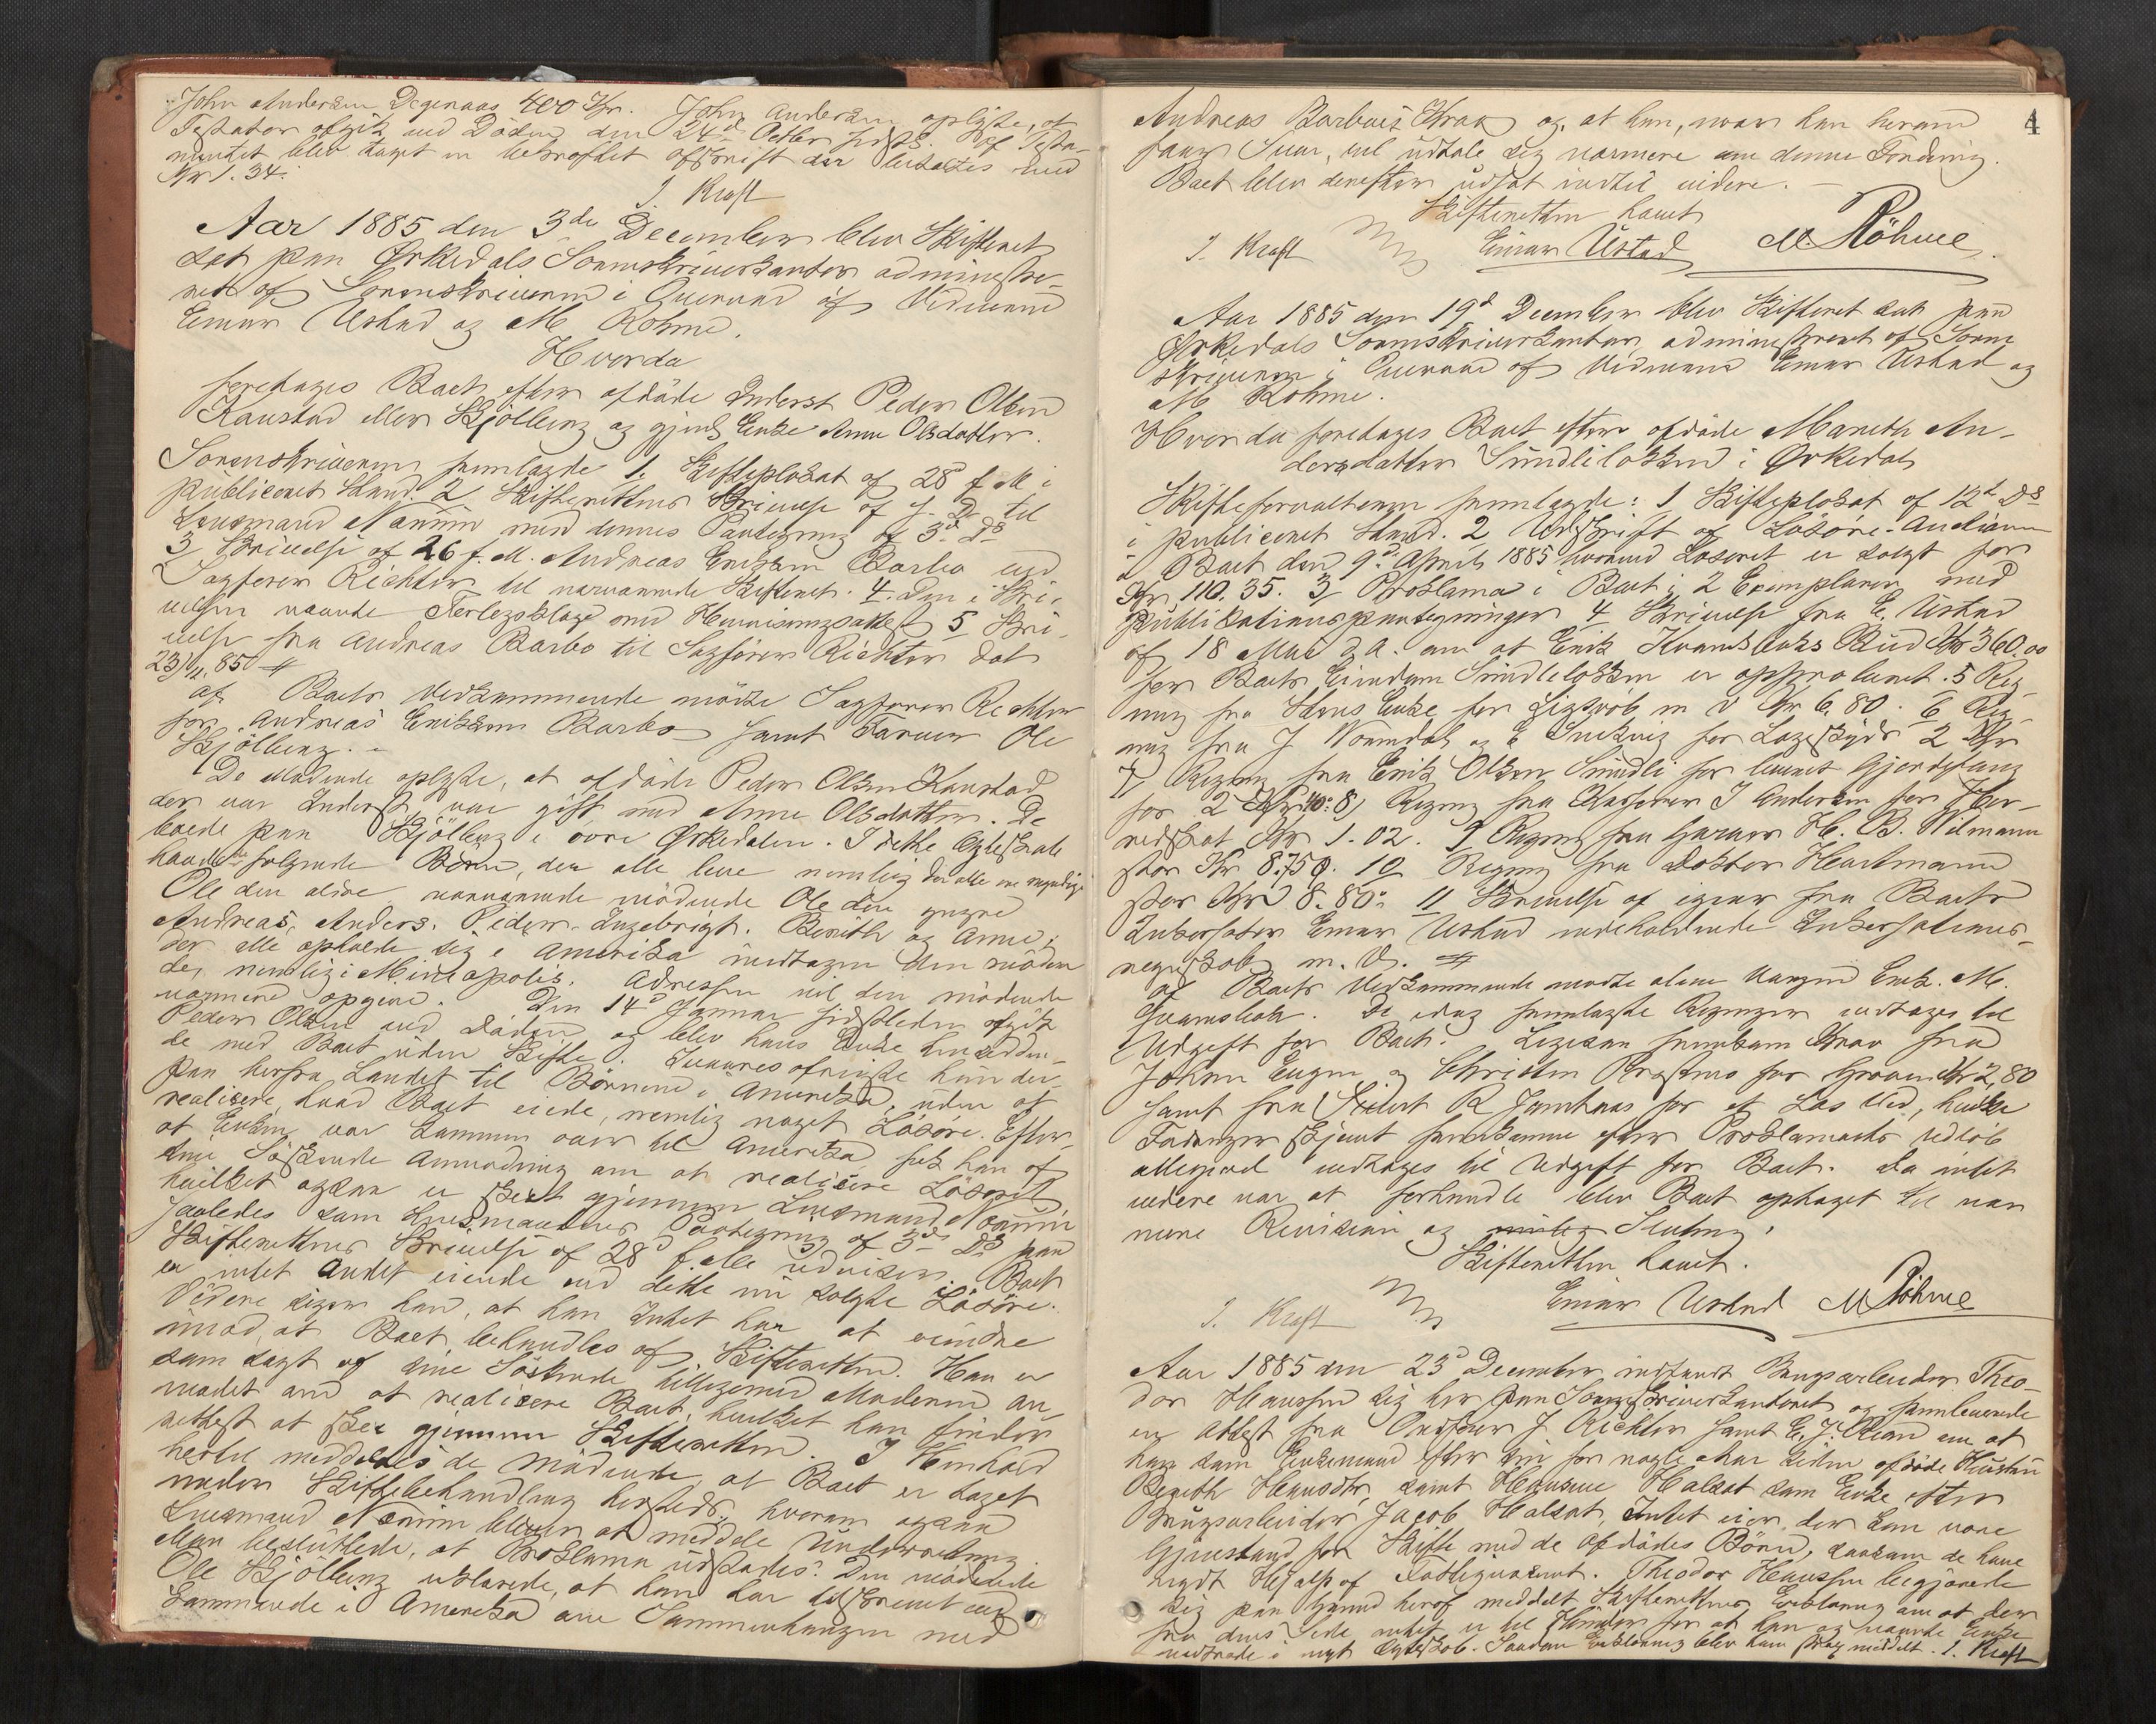 John Andersen Degenaas 400 Kr. John Andersen oplyste, at
Testator afgik ved Döden den 24d Octbr sidstl. Af Testa-
mentet blev taget en bekræftet Afskrift der betaltes med
Kr 1.34.
J. Kraft
Aar 1885 den 3de December blev Skifteret
sat paa Örkedals Sorenskriverkontor administre-
ret af Sorenskriveren i Overvær af Vidnerne
Einar Ustad og M. Röhme.
Hvorda
foretages Boet efter afdöde Inderst Peder Olsen
Kaustad eller Skjölberg og gjenl. Enke Anne Olsdatter.
Sorenskriveren fremlagde 1, Skifteplakat af 28d f. M. i
publiceret Stand. 2 Skifterettens Skrivelse af s. D. til
Lensmand Narum med dennes Paategning af 3d ds
3 Skrivelse af 26 f. M. Andreas Eriksen Barbo ved
Sagförer Richter til nærværende Skifteret. 4. Den i Skri-
velsen nævnte Forligsklage med Henvisningsattest 5 Skri-
velse fra Andreas Barbo til Sagförer Richter dat
23/11. 85
Af Boets Vedkommende mödte Sagförer Richter
for Andreas Eriksen Barbo samt Farver Ole
Skjölberg.
De Mödende oplyste, at afdöde Peder Olsen Kaustad
der var Inderst, var gift med Anne Olsdatter. De
boede paa Skjölberg i övre Örkedalen. I dette Ægteskab
havde følgende Børn, der alle leve nemlig der alle ere myndige
Ole den ældre, nærværende mödende Ole den yngre
Andreas, Anders. Peder. Ingebrigt. Berith og Anne,
der alle opholde sig i Amerika undtagen den möden
de, nemlig i Mineapolis. Adressen vil den mödende
nærmere opgive. Den 14d Januar sidstleden afgik
Peder Olsen ved Döden, og blev hans Enke hensidden-
de med Boet uden Skifte. Ivaares afreiste hun der-
paa herfra Landet til Börnene i Amerika, uden at
realisere, hvad Boet eiede, nemlig noget Lösöre. Efter
at Enken var kommen over til Amerika, fik han af
sine Söskende Anmodning om at realisere Lösöret,
hvilket ogsaa er skeet gjennem Lensmand Narum
saaledes som Lensmandens Paategning af 3d Ds paa
Skifterettens Skrivelse af 28d f. M. udviser. Boet
er intet Andet eiende end dette nu solgte Lösöre.
Videre siger han, at han Intet har at erindre
imod, at Boet behandles af Skifteretten. Han er
som sagt af sine Söskende tilligemed Moderen an-
modet om at realisere Boet, hvilket han finder
rettest at ske gjennem Skifteretten. I Henhold
hertil meddeltes de Mödende, at Boet er taget
under Skiftebehandling hersteds, hvorom ogsaa
Lensmand Narum bliver at meddele Underretning.
Man besluttede, at Proklama udstedes. Den mödende
Ole Skjölberg erklærede, at han har tilskrevet sine
Sammende i Amerika om Sammenhængen med
4
Andreas Barbo's Krav og, at han, naar han herom
faar Svar, vil udtale sig nærmere om denne Fordring.
Boet blev derefter udsat indtil videre.
Skifteretten hævet
J. Kraft Einar Ustad M Röhme
Aar 1885 den 19d December blev Skifteret sat paa
Örkedals Sorenskriverkontor administreret af Soren
skriveren i Overvær af Vidnerne Einar Ustad og
M Röhme.
Hvorda foretages Boet efter afdöde Mareth An-
dersdatter Sundliløkken i Örkedal
Skifteforvalteren fremlagde: 1 Skifteplakat af 12te ds
i publiceret Stand. 2 Udskrift af Lösöre-Auction
i Boet den 9d April 1885 hvorved Løsöret er solgt for
Kr 110.35. 3 Proklama i Boet i 2 Exemplarer med
Publikationspaategninger 4 Skrivelse fra E. Ustad
af 18 Mai d. A. om at Erik Kvamsleks Bud Kr 360.00
for Boets Eiendom Sundliløkken er approberet. 5 Reg-
ning fra Enke for Ligsvöb m v Kr 6.80. 6 Reg-
ning fra J Vormdal og E for Lægeskyds 2 Kr
7 Regning fra Erik Olsen Sundli for leveret Gjerdefang
for 2 Kr 40. 8, Regning fra Kasserer J Andersen for Her-
redskat Kr 1.02. 9 Regning fra Garver H. B. Wilmann
stor Kr 8.75. 10 Regning fra Doktor Hartmann
stor Kr 8.80. 11 Skrivelse af igaar fra Boets
Inkassator Einar Ustad indeholdende Inkassations-
regnskab m. V.
Af Boets Vedkommende mødte alene Værgen Erik M.
Kvamslek. De idag fremlagte Regninger indtages til
Udgift for Boet. Ligesaa fremkom Krav fra
Johan Eugen og Christen for Graven Kr 2,80
samt fra Sivert R. Jamtaas for et Læs Ved, hvilke
Fordringer skjønt fremkomne efter Proklamaets Udløb
alligevel indtages til Udgift for Boet. Da intet
videre var at forhandle blev Boet optaget til nær
mere Revision og Slutning.
Skifteretten hævet.
J. Kraft Einar Ustad M Röhme
Aar 1885 den 23d December indfandt Brugsarbeider Theo-
dor Hanssen sig her paa Sorenskriverkontoret og fremleverede
en Attest fra Ordfører J. Richter samt E. J. om at
han som Enkemand efter sin for nogle Aar siden afdöde Hustru
Bereth Hansdtr, samt Hansine Halsæt som Enke efter
Brugsarbeider Jacob Halsæt, Intet eier, der kan være
Gjenstand for Skifte med de Afdödes Börn, saasom de have
nydt Hjælp af Fattigvæsenet. Theodor Hanssen begjærede
sig paa Grund heraf meddelt Skifterettens Erklæring om at der
fra dens Side intet er til Hinder for at han og nævnte Enke
indtræde i nyt Ægteskab. Saadan Erklæring blev ham strax meddelt. J. Kraft